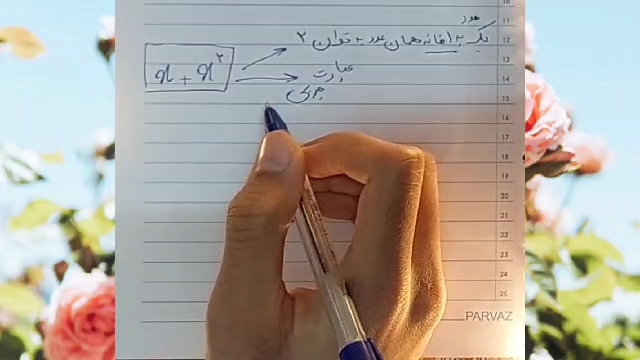 یک عدد به اضافه همان عدد به توان ۲
x + x²
عبارت
جبری
11
12
13
14
15
16
17
18
19
20
21
22
23
24
25
PARVAZ